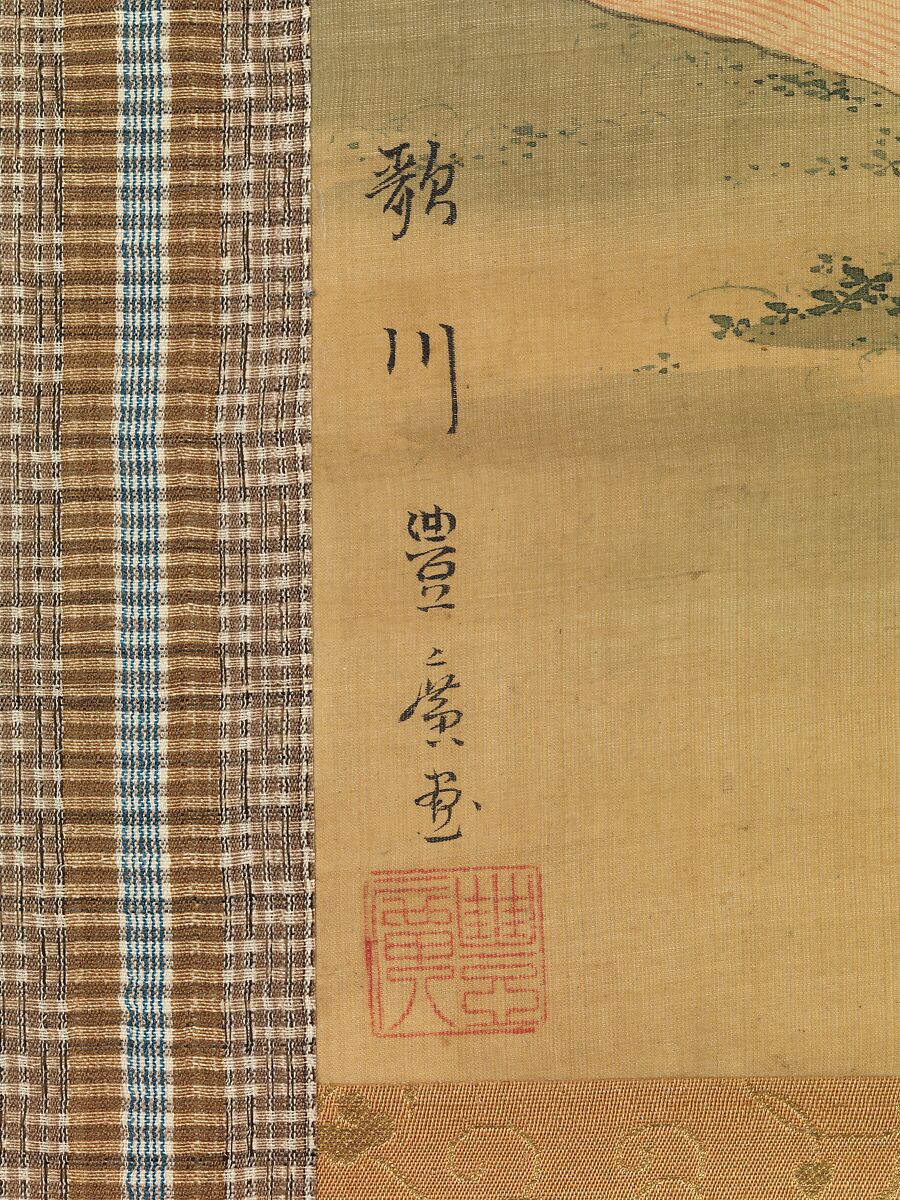 歌川豊廣画
豊廣